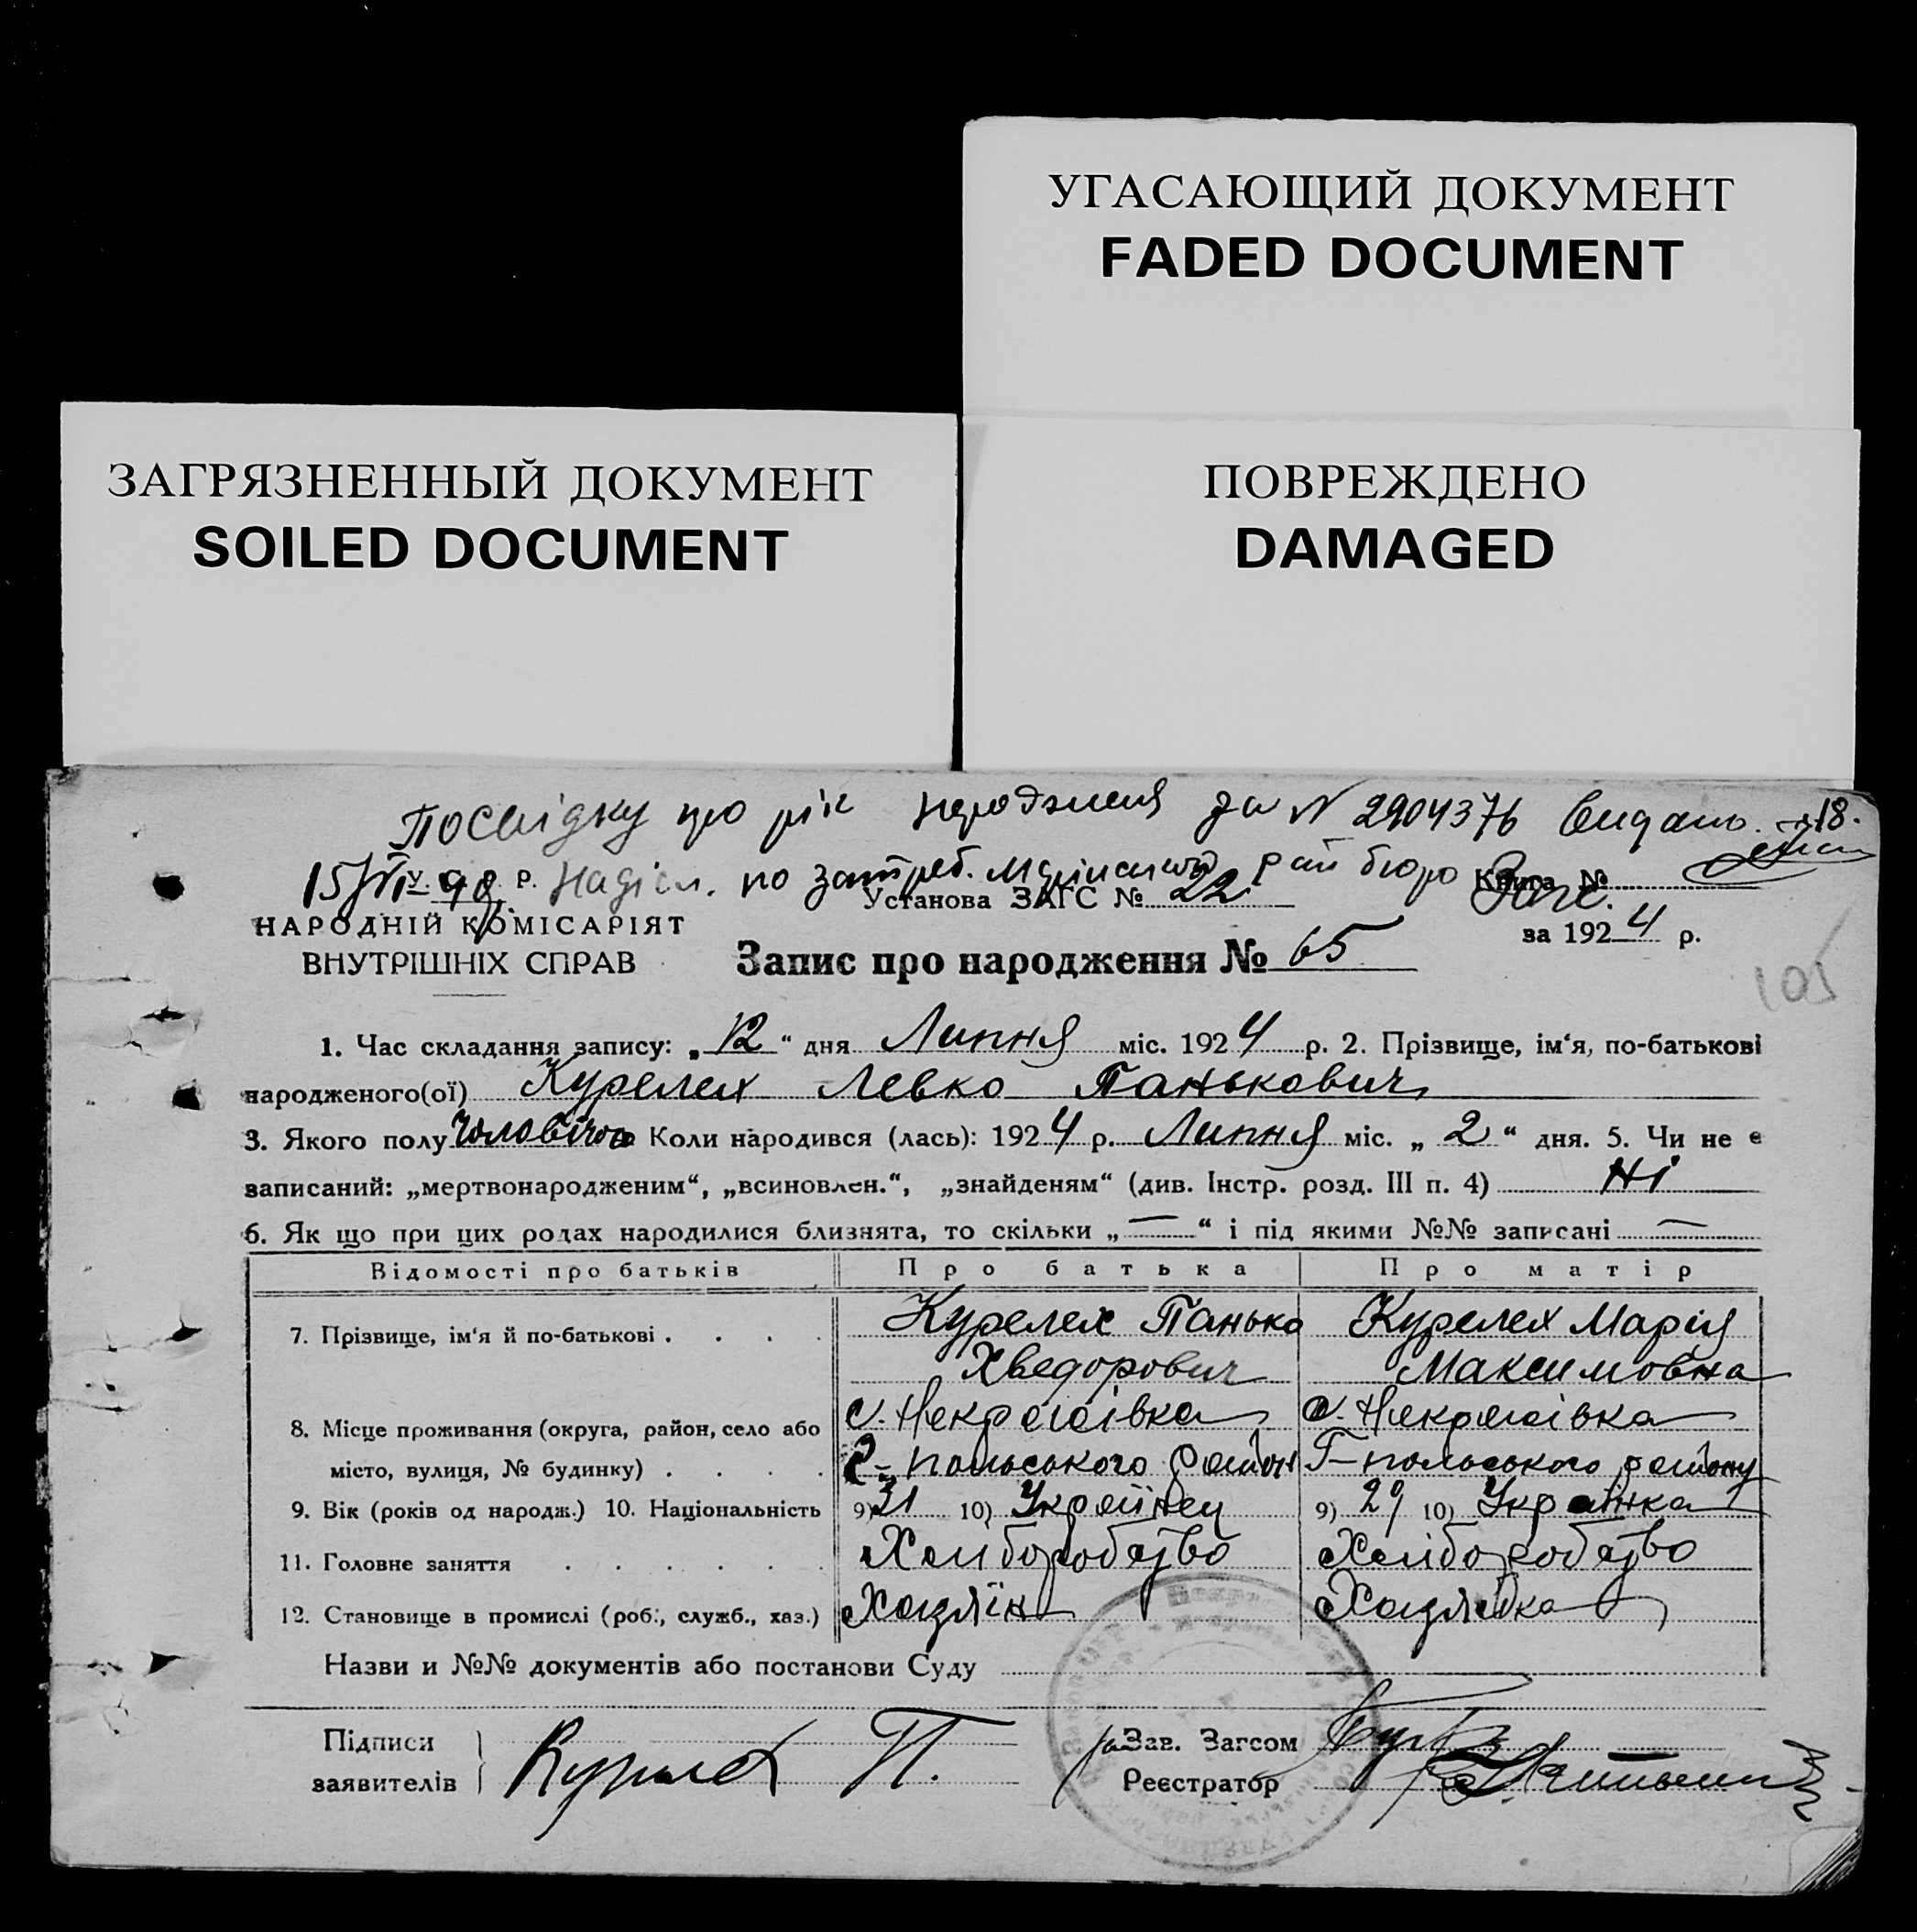 УГАСАЮЩИЙ ДОКУМЕНТ
FADED DOCUMENT
ЗАГРЯЗНЕННЫЙ ДОКУМЕНТ
SOILED DOCUMENT
ПОВРЕЖДЕНО
DAMAGED
Посвідку про рік народження за N 2904376 видано
15/VI 48. Надісл. по затреб. рай бюро Загс.
У. С. Р. Р.
Установа ЗАГС № 22
Книга №
НАРОДНІЙ КОМІСАРІЯТ
ВНУТРІШНІХ СПРАВ
за 1924 р.
Запис про народження № 65
105
1. Час складання запису: „12“ дня Липня міс. 1924 р. 2. Прізвище, ім‘я, по-батькові
народженого(ої) Курелех Левко Панькович
3. Якого полу чоловічого Коли народився (лась): 1924 р. Липня міс. „2“ дня. 5. Чи не є
записаний: „мертвонародженим“, „всиновлен.“, „знайденям“ (див. Інстр. розд. III п. 4) Ні
6. Як що при цих родах народилися близнята, то скільки „—“ і під якими №№ записані —
Відомості про батьків Про батька Про матір
7. Прізвище, ім‘я й по-батькові . . . . Курелех Панько Курелех Марія
Хведорович Максимовна
8. Місце проживання (округа, район, село або с. Некрасівка с. Некрасівка
місто, вулиця, № будинку) . . . . Г-польського район Г-польського району
9. Вік (років од народж.) 10. Національність 9) 31 10) Українец 9) 29 10) Українка
11. Головне заняття . . . . . . Хліборобство Хліборобство
12. Становище в промислі (роб., служб., хаз.) Хазяїн Хазяйка
Назви и №№ документів або постанови Суду
Підписи
заявителів
Курелех П.
Зав. Загсом
Реєстратор